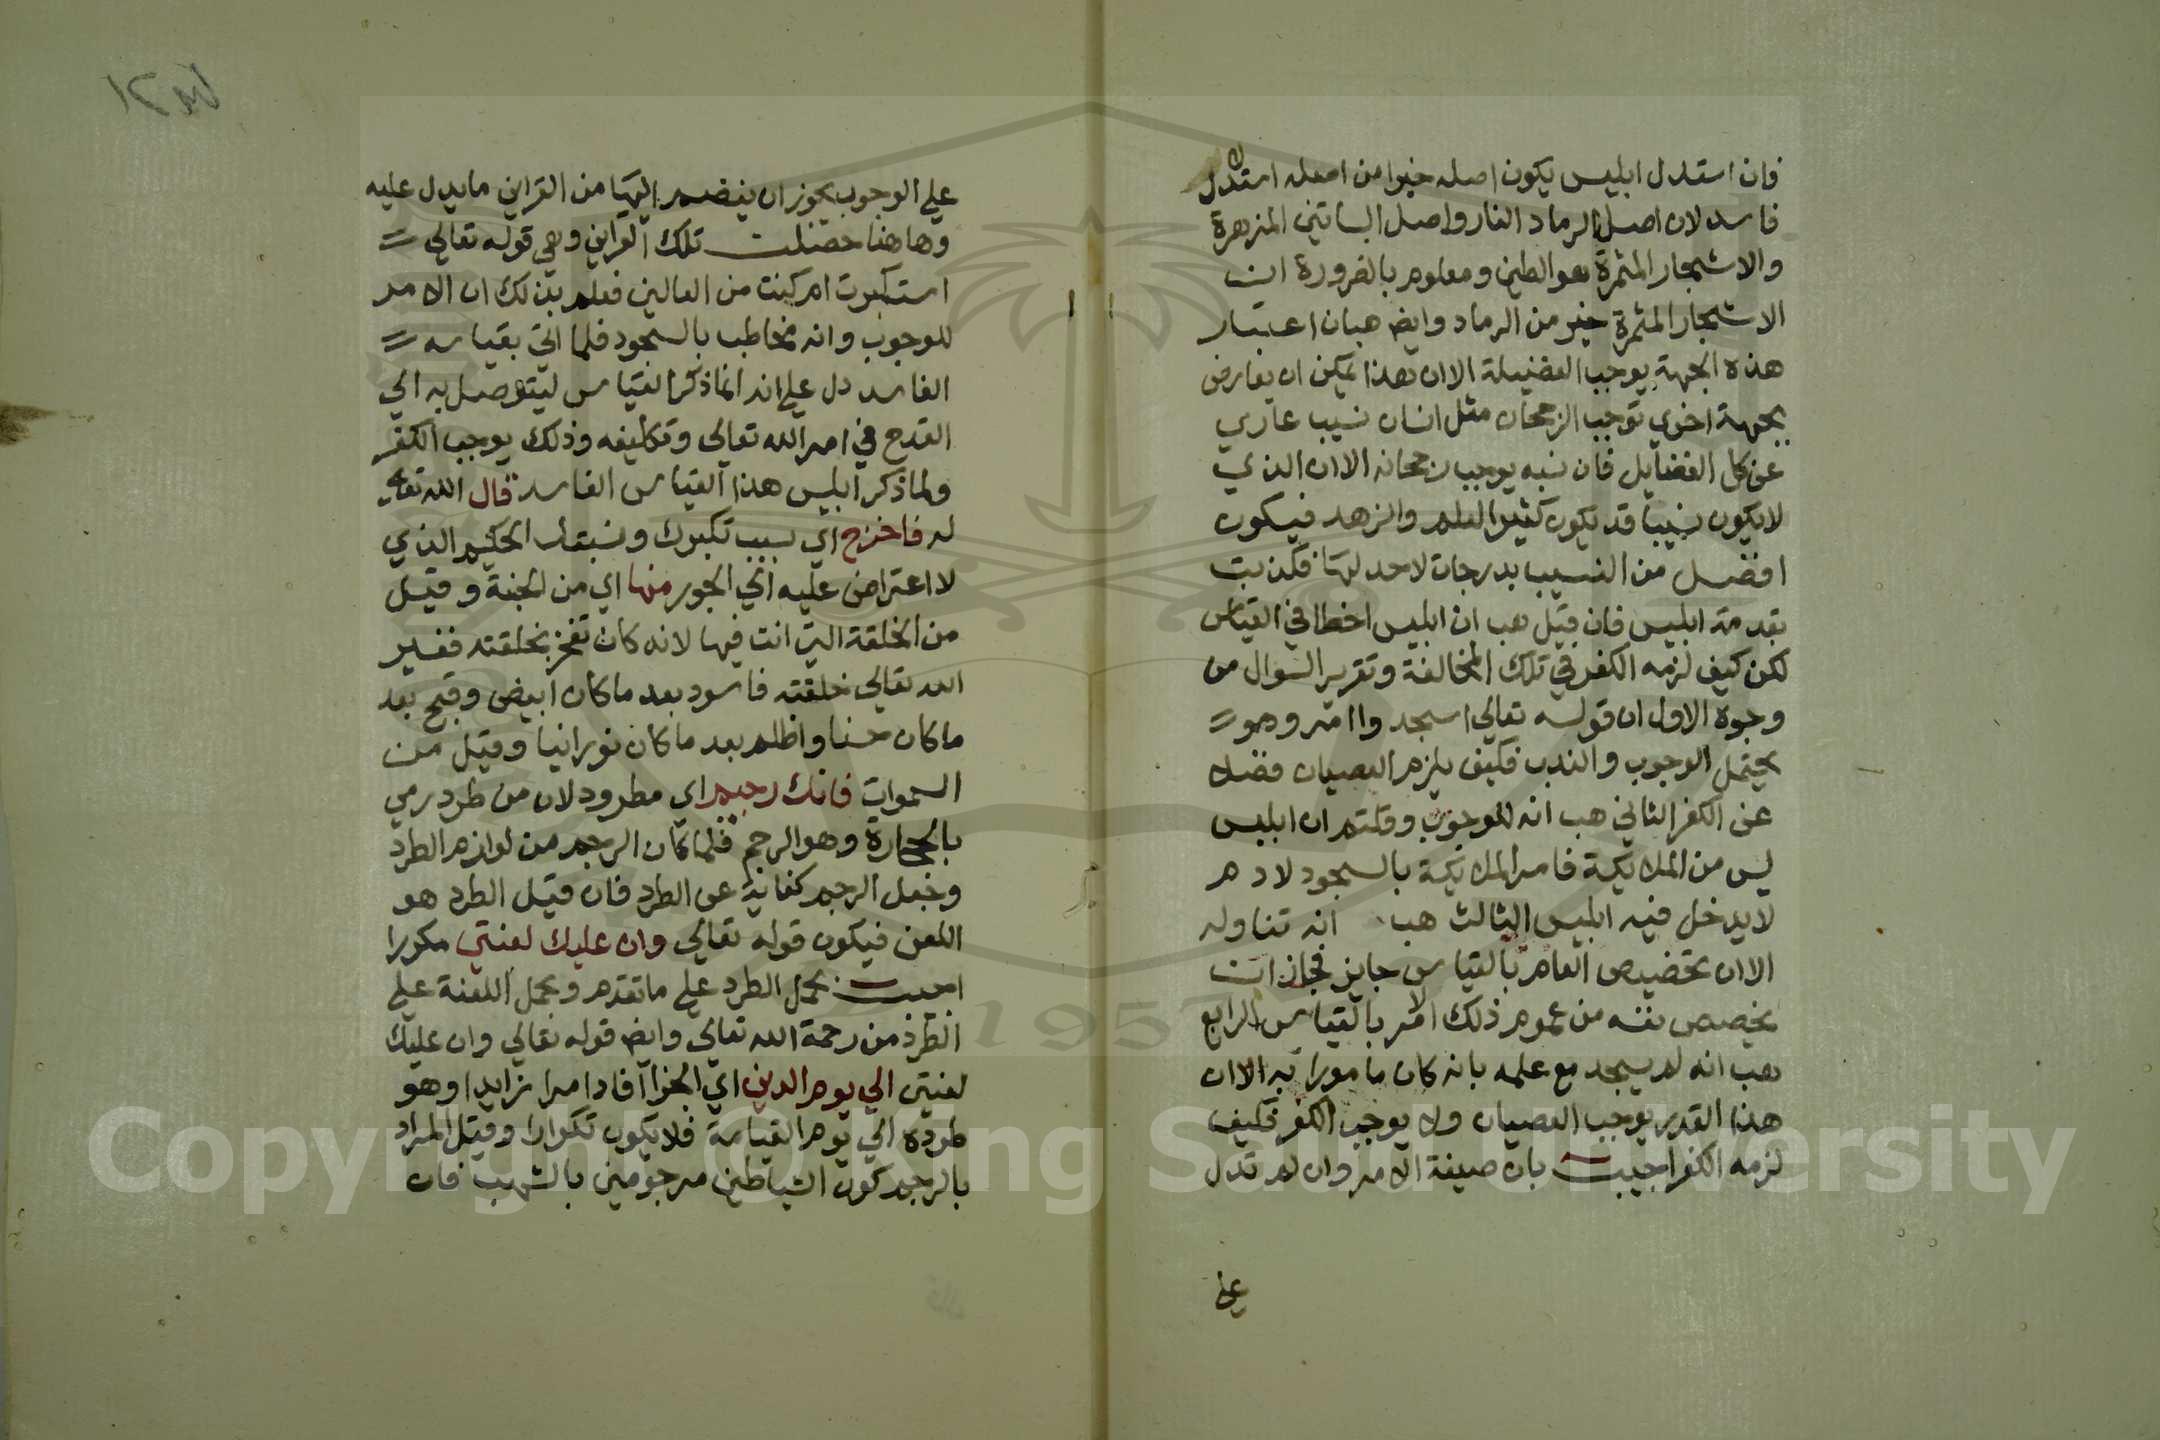 فان استدل ابليس يكون اصله خيرا من اصله استدلال
فاسد لان اصل الرماد النار واصل البساتين المزهرة
والاشجار المثمرة هو الطين ومعلوم بالضرورة ان
الاشجار المثمرة خير من الرماد وايض هب ان اعتبار
هذه الجهة يوجب الفضيلة الا ان هذا يمكن ان يعارض
بجهة اخري توجب الرجحان مثل انسان نسيب عاري
عن كل الفضايل فان نسبه يوجب رجحانه الا ان الذي
لا يكون نسيبا قد يكون كثير العلم والزهد فيكون
افضل من النسيب بدرجات لا حد لها فكذبت
مقدمة ابليس فان قيل هب ان ابليس اخطا في القياس
لكن كيف لزمه الكفر في تلك المخالفة وتقرير السوال من
وجوه الاول ان قوله تعالي اسجدوا امر وهو
يحتمل الوجوب والندب فكيف يلزم العصيان فضلا
عن الكفر الثاني هب انه للوجوب وقلتم ان ابليس
ليس من الملايكة فامر الملايكة بالسجود لادم
لا يدخل فيه ابليس الثالث هب انه تناوله
الا ان تخصيص العام بالقياس جايز فجاز ان
يخصص نفسه من عموم ذلك الامر بالقياس الرابع
هب انه لم يسجد مع علمه بانه كان مامورا به الا ان
هذا القدر يوجب العصيان ولا يوجب الكفر فكيف
لزمه الكفر اجيب بان صيغة الامر وان لم تدل
علي
علي الوجوب يجوز ان ينضم اليها من القراين ما يدل عليه
وهاهنا حصلت تلك القراين وهي قوله تعالي
استكبرت ام كنت من العالين فعلم بذلك ان الامر
للوجوب وانه مخاطب بالسجود فلما اتي بقياسه
الفاسد دل علي انه انما ذكر القياس ليتوصل به الي
القدح في امر الله تعالي وتكليفه وذلك يوجب الكفر
ولما ذكر ابليس هذا القياس الفاسد قال الله تعالي
له فاخرج اي بسبب تكبرك ونسبتك الحكيم الذي
لا اعتراض عليه الي الجور منها اي من الجنة وقيل
من الخلقة التي انت فيها لانه كان تفخر بخلقته فغير
الله تعالي خلقته فاسود بعد ما كان ابيض وقبح بعد
ما كان حسنا واظلم بعد ما كان نورانيا وقيل من
السموات فانك رجيم اي مطرود لان من طرد رمي
بالحجارة وهو الرجم فلما كان الرجم من لوازم الطرد
وجعل الرجم كناية عن الطرد فان قيل الطرد هو
اللعن فيكون قوله تعالي وان عليك لعنتي مكررا
اجيب بحمل الطرد علي ما تقدم وبحمل اللعنة علي
الطرد من رحمة الله تعالي وايض قوله تعالي وان عليك
لعنتي الي يوم الدين اي الجزا افاد امرا زايدا وهو
طرده الي يوم القيامة فلا يكون تكرارا وقيل المراد
بالرجم كون الشياطين مرجومين بالشهب فان
Copyright © King Saud University
1957